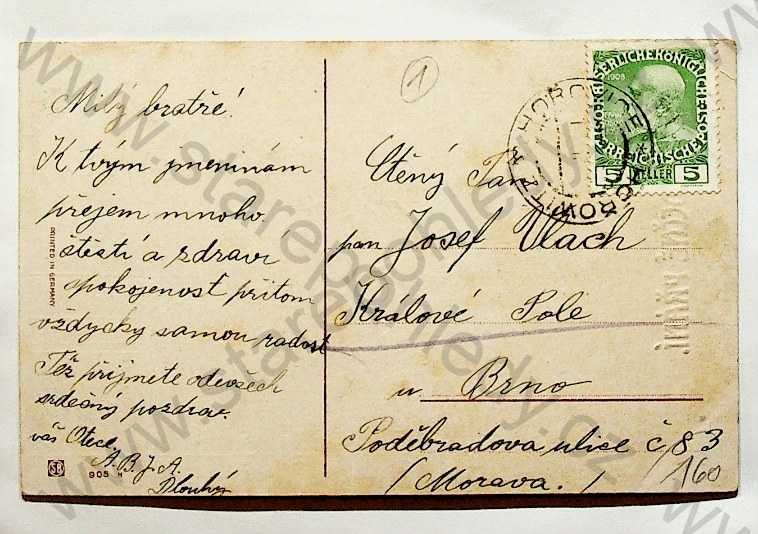 Milý bratře!
K tvým jmeninám
přejem mnoho
štěstí a zdraví
spokojenost přitom
vždycky samou radost
Též přijmete odevšech
srdečný pozdrav.
váš Otec
A.B.J.A.
Dlouhý
PRINTED IN GERMANY
SB
905 H
1
Ctěný Pan
pan Josef Vlach
Králové Pole
u Brno
Poděbradova ulice č. 83
(Morava.)
160
HOŘOVICE
1908
5 HELLER 5
www.starepohledy.cz